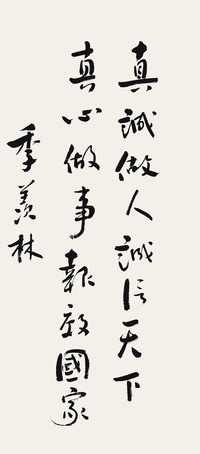 真誠做人誠信天下
真心做事報效國家
季羨林